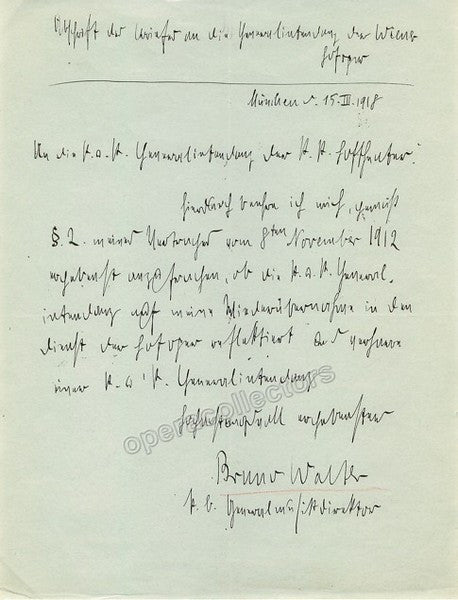 Abschrift des Briefes an die Generalintendanz der Wiener
Hofoper
München d. 15. III. 1918
An die K. u. K. Generalintendanz der K. K. Hoftheater!
Hierdurch beehre ich mich, gemäß
§. 2. meines Vertrages vom 8ten November 1912
ergebenst anzufragen, ob die K. u. K. General-
intendanz auf meine Wiederübernahme in den
Dienst der Hofoper reflektiert und verharre
einer K. u. K. Generalintendanz
hochachtungsvoll ergebenster
Bruno Walter
k. b. Generalmusikdirektor
operacollectors